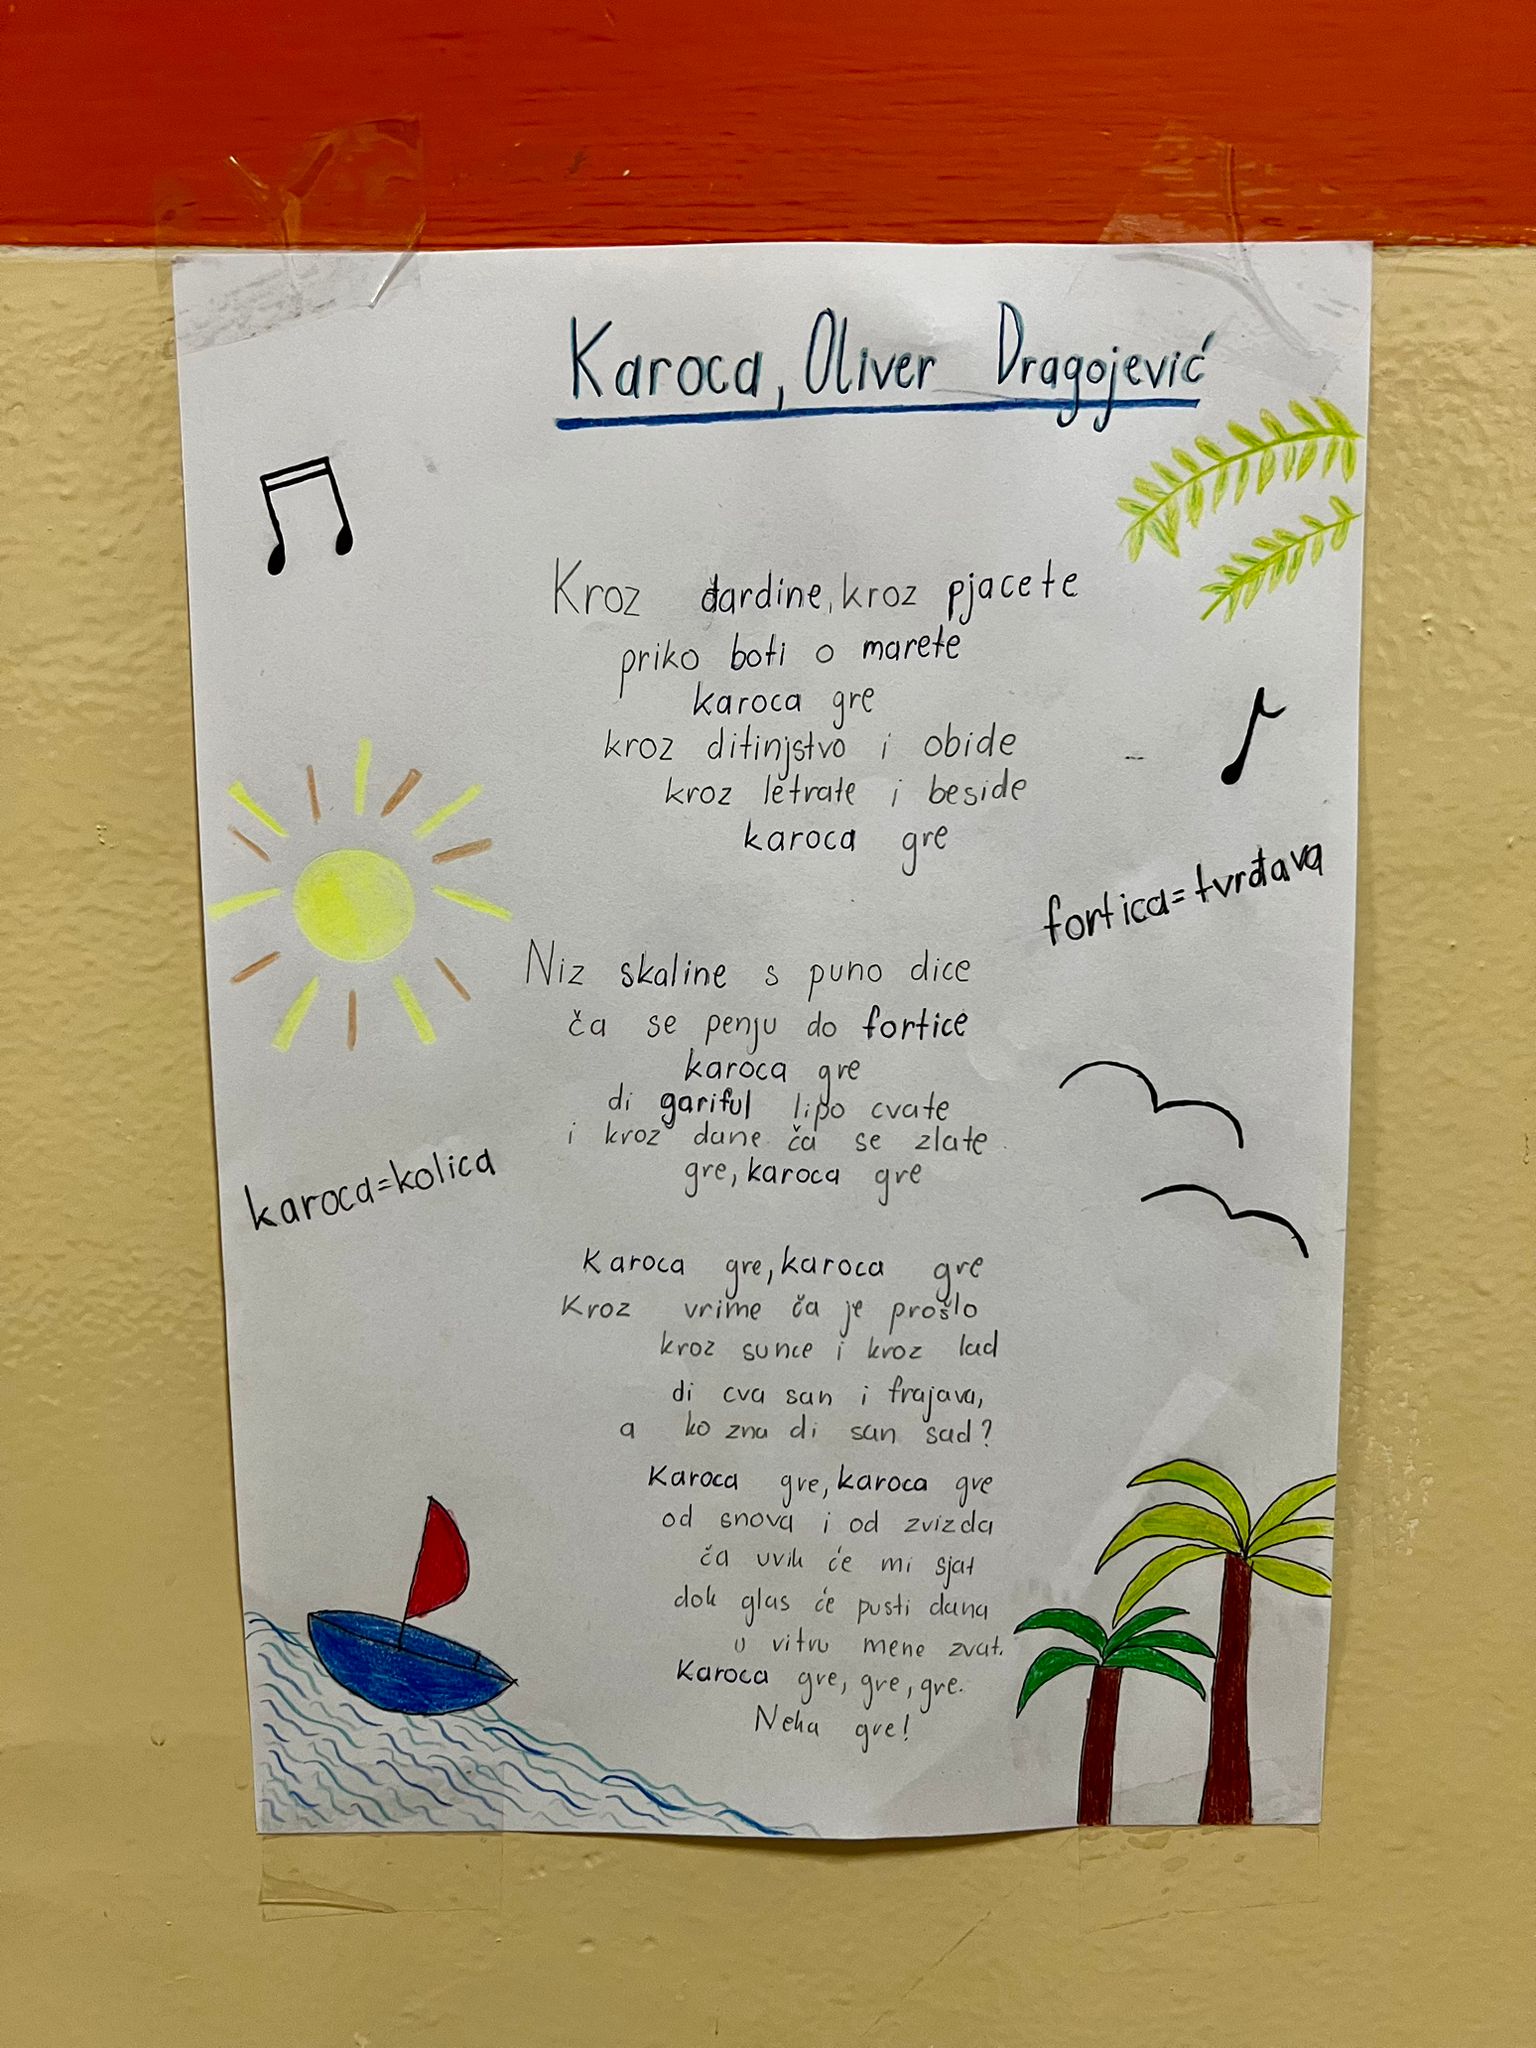 Karoca, Oliver Dragojević
Kroz đardine, kroz pjacete
priko boti o marete
karoca gre
kroz ditinjstvo i obide
kroz letrate i beside
karoca gre
fortica=tvrđava
Niz skaline s puno dice
ča se penju do fortice
karoca gre
di gariful lipo cvate
i kroz dane ča se zlate
gre, karoca gre
karoca=kolica
Karoca gre, karoca gre
Kroz vrime ča je prošlo
kroz sunce i kroz lad
di cva san i frajava,
a ko zna di san sad?
Karoca gre, karoca gre
od snova i od zvizda
ča uvik će mi sjat
dok glas će pusti dana
u vitru mene zvat.
Karoca gre, gre, gre.
Neka gre!